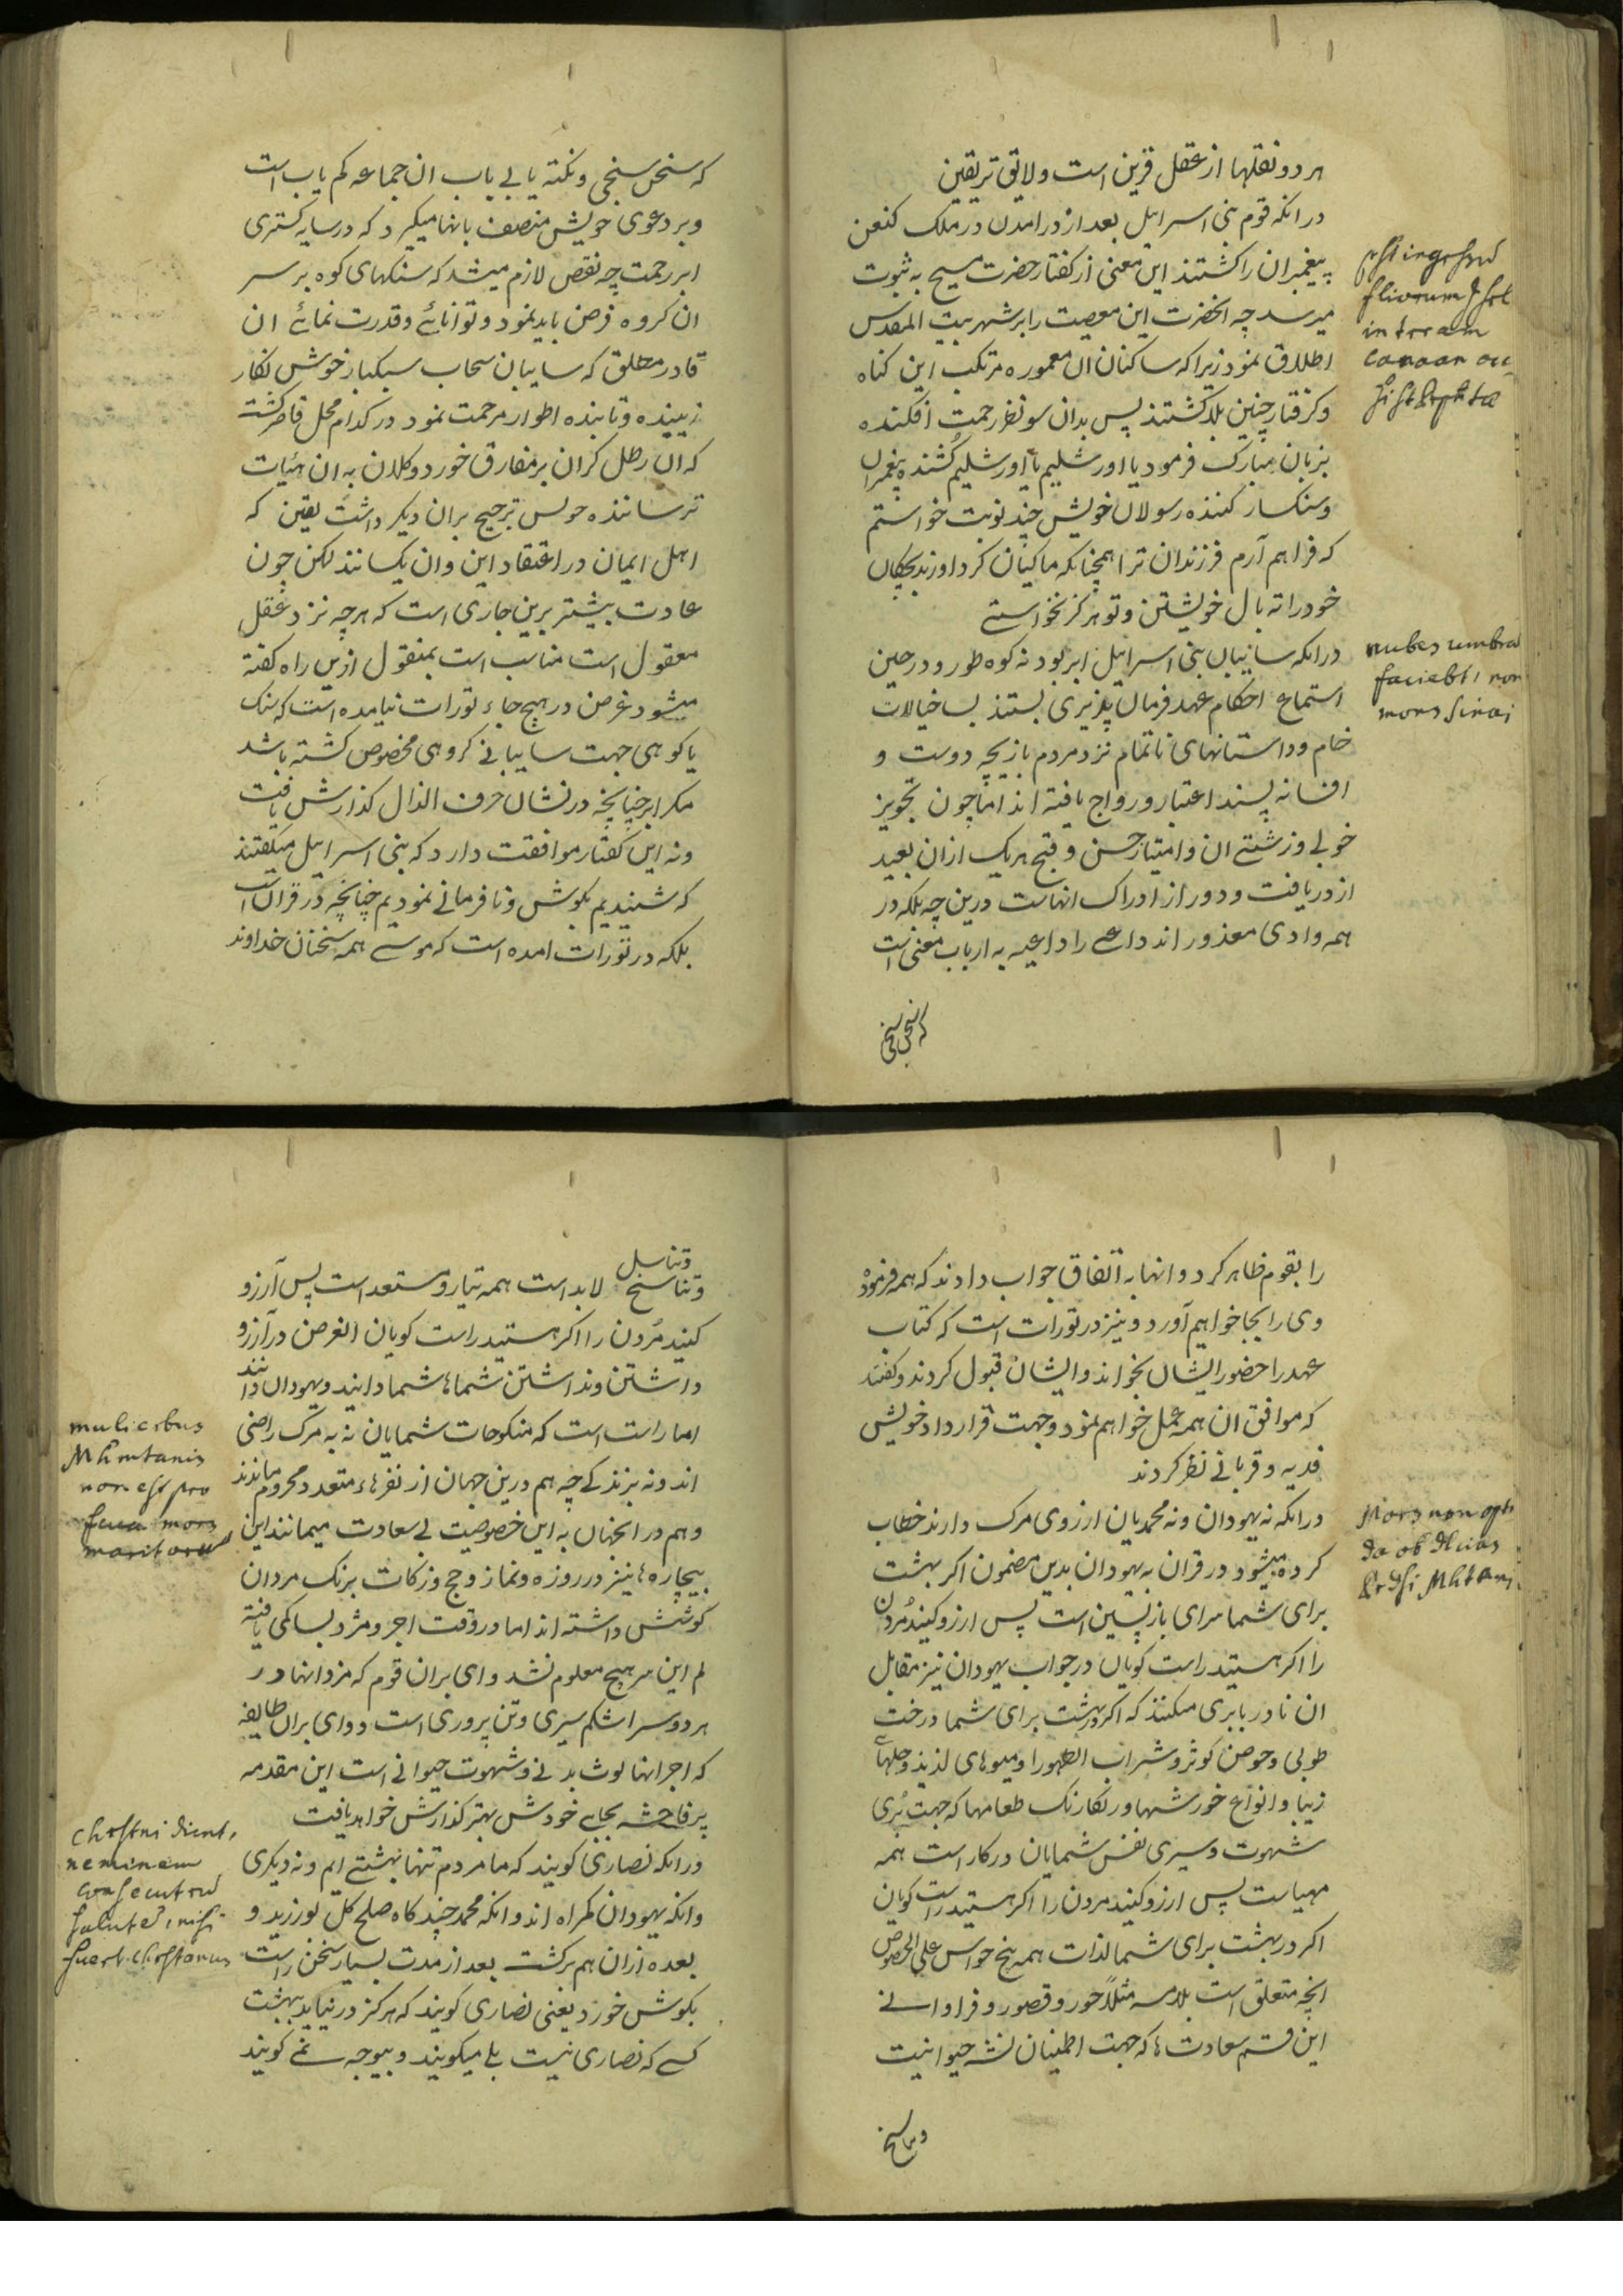 هر دو نقلها از عقل قرین است و لایق تر یقین
در انکه قوم بنی اسرایل بعد از درامدن در ملک کنعن
پیغمبران را کشتند این معنی از کفتار حضرت مسیح به ثبوت
میرسد چه انحضرت این معصیت را بر شهر بیت المقدس
اطلاق نمود زیرا که ساکنان ان معموره مرتکب این کناه
و کرفتار چنین بلا کشتند پس بدان سو نظر رحمت افکنده
بزبان مبارک فرمود یا اورشلیم یا اورشلیم کُشنده پیغمبران
و سنکسار کننده رسولان خویش چند نوبت خواستم
که فراهم آرم فرزندان ترا همچنانکه ماکیان کرد اورد بچکان
خود را ته بال خویشتن و تو هرکز نخواستے
در انکه سایبان بنی اسرایل ابر بود نه کوه طور و در حین
استماع احکام عهد فرمان پذیری بستند بسا خیالات
خام و داستانهای ناتمام نزد مردم بازیچه دوست و
افسانه پسند اعتبار و رواج یافته اند اما چون تجویز
خوبی و زشتے ان و امتیاز حسن و قبح هریک ازان بعید
از دریافت و دور از ادراک انهاست درین چه بلکه در
همه وادی معذور اند داعے را داعیه به ارباب معنی است
post ingressum
filiorum Isrl
in terram
Canaan oc-
cisi st Prophetæ
nubes umbra
faciebat, non
mons Sinai
که سخن سنجی و نکته یابی باب ان جماعه کم یاب است
و بر دعوی خویش منصف بانها میکیرد که در سایه کستری
ابر رحمت چه نقص لازم میشد که سنکهای کوه بر سر
ان کروه فرض باید نمود و توانائے و قدرت نمائے ان
قادر مطلق که سایبان سحاب سبکبار خوش نکار
زیبنده و تابنده اطوار مرحمت نمود در کدام محل قاصر کشت
که ان رطل کران بر مفارق خورد و کلان به ان هئیات
ترساننده ترجیح بران دیکر داشت یقین که
اهل ایمان در اعتقاد این و ان یکسانند لکن چون
عادت بیشتر برین جاری است که هرچه نزد عقل
معقول است مناسب است بمنقول ازین راه کفته
میشود غرض در هیچ جاء تورات نیامده است که سنک
یا کوهی جهت سایبانے کروهی مخصوص کشته باشد
مکر ابر چنانچه در نشان حرف الذال کذارش یافت
و نه این کفتار موافقت دارد که بنی اسرایل میکفتند
که شنیدیم بکوش و نافرمانے نمودیم چنانچه در قران است
بلکه در تورات امده است که موسے همه سخنان خداوند
را بقوم ظاهر کرد و انها به اتفاق جواب دادند که همه فرموده
وی را بجا خواهیم آورد و نیز در تورات است که کتاب
عهد را حضور ایشان بخواند و ایشان قبول کردند و کفتند
که موافق ان همه عمل خواهم نمود و جهت قرارداد خویش
فدیه و قربانے نظر کردند
در انکه نه یهودان و نه محمدیان ارزوی مرک دارند خطاب
کرده میشود در قران به یهودان بدین مضمون اکر بهشت
برای شما سرای بازپسین است پس ارزو کنید مُردن
را اکر هستید راست کویان در جواب یهودان نیز مقابل
ان نادر برابری میکنند که اکر در بهشت برای شما درخت
طوبی و حوض کوثر و شراب الطهورا و میوهای لذیذ و حلهاے
زیبا و انواع خورشها و رنکارنک طعامها که جهت پُری
شهوت و سیری نفس شمایان در کار است همه
مهیاست پس ارزو کنید مردن را اکر هستید راست کویان
اکر در بهشت برای شما لذات همه پنج حواس علی الخصوص
انچه متعلق است بلامسه مثلاً حور و قصور و فراوانے
این قسم سعادت ها که جهت اطمینان نشه حیوانیت
و تناسخ
Mors non opta
da ob dlicias
Mhtani
و تناسل
و تناسخ لابد است همه تیار و مستعد است پس آرزو
کنید مُردن را اکر هستید راست کویان الغرض در آرزو
داشتن و نداشتن شماها شما دانید و یهودان دانند
اما راست است که منکوحات شمایان نه به مرک راضی
اند و نه بزندکے چه هم درین جهان از نفرهاء متعدد محروم ماندند
و هم در انجهان به این خصوصیت بی سعادت میمانند این
بیچاره ها نیز در روزه و نماز و حج و زکات برنک مردان
کوشش داشته اند اما در وقت اجر و مزد بسا کمی یافته
لم این سر هیچ معلوم نشد وای بران قوم که مزد انها در
هر دو سرا شکم سیری و تن پروری است و وای بران طایفه
که اجر انها لوث بدنے و شهوت حیوانے است این مقدمه
پر فاحشه بجاے خودش بهتر کذارش خواهد یافت
در انکه نصاری کویند که ما مردم تنها بهشتے ایم و نه دیکری
و انکه یهودان کمراه اند و انکه محمد چند کاه صلح کل بورزید و
بعده ازان هم برکشت بعد از مدت بسیار سخن راست
بکوش خورد یعنی نصاری کویند که هرکز در نیاید بهشت
کسے که نصاری نیست بلے میکویند و بیوجه نمے کویند
mulieribus
Mhmtanis
non est pro
ficua mors
maritorum
Chrstni dicunt,
neminem
consecuturum
salutem, nisi
fuert Chrstianus